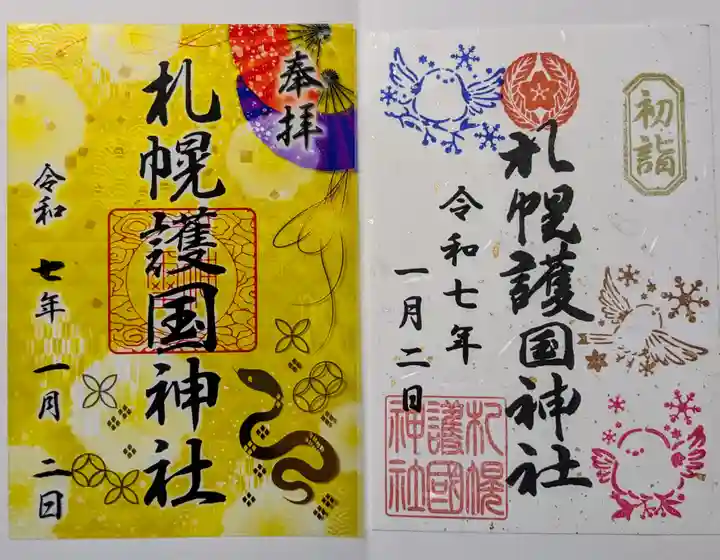 奉拝
札幌護国神社
令和七年一月二日
初詣
札幌護国神社
令和七年
一月二日
札幌
護國
神社